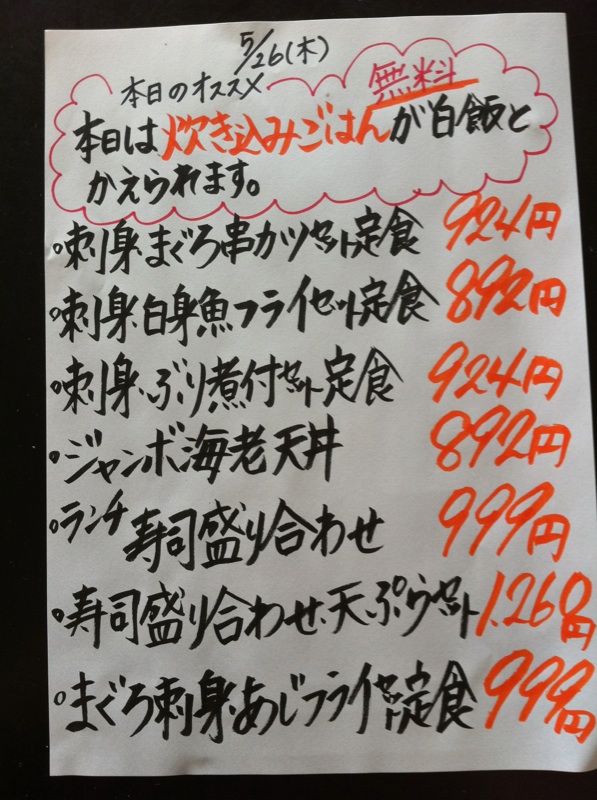 5/26(木)
本日のオススメ
無料
本日は炊き込みごはんが白飯と
かえられます。
○刺身.まぐろ串カツセット定食 924円
○刺身.白身魚フライセット定食 892円
○刺身.ぶり煮付セット定食 924円
○ジャンボ海老天丼 892円
○ランチ寿司盛り合わせ 999円
○寿司盛り合わせ.天ぷらセット 1.260円
○まぐろ刺身.あじフライセット定食 999円